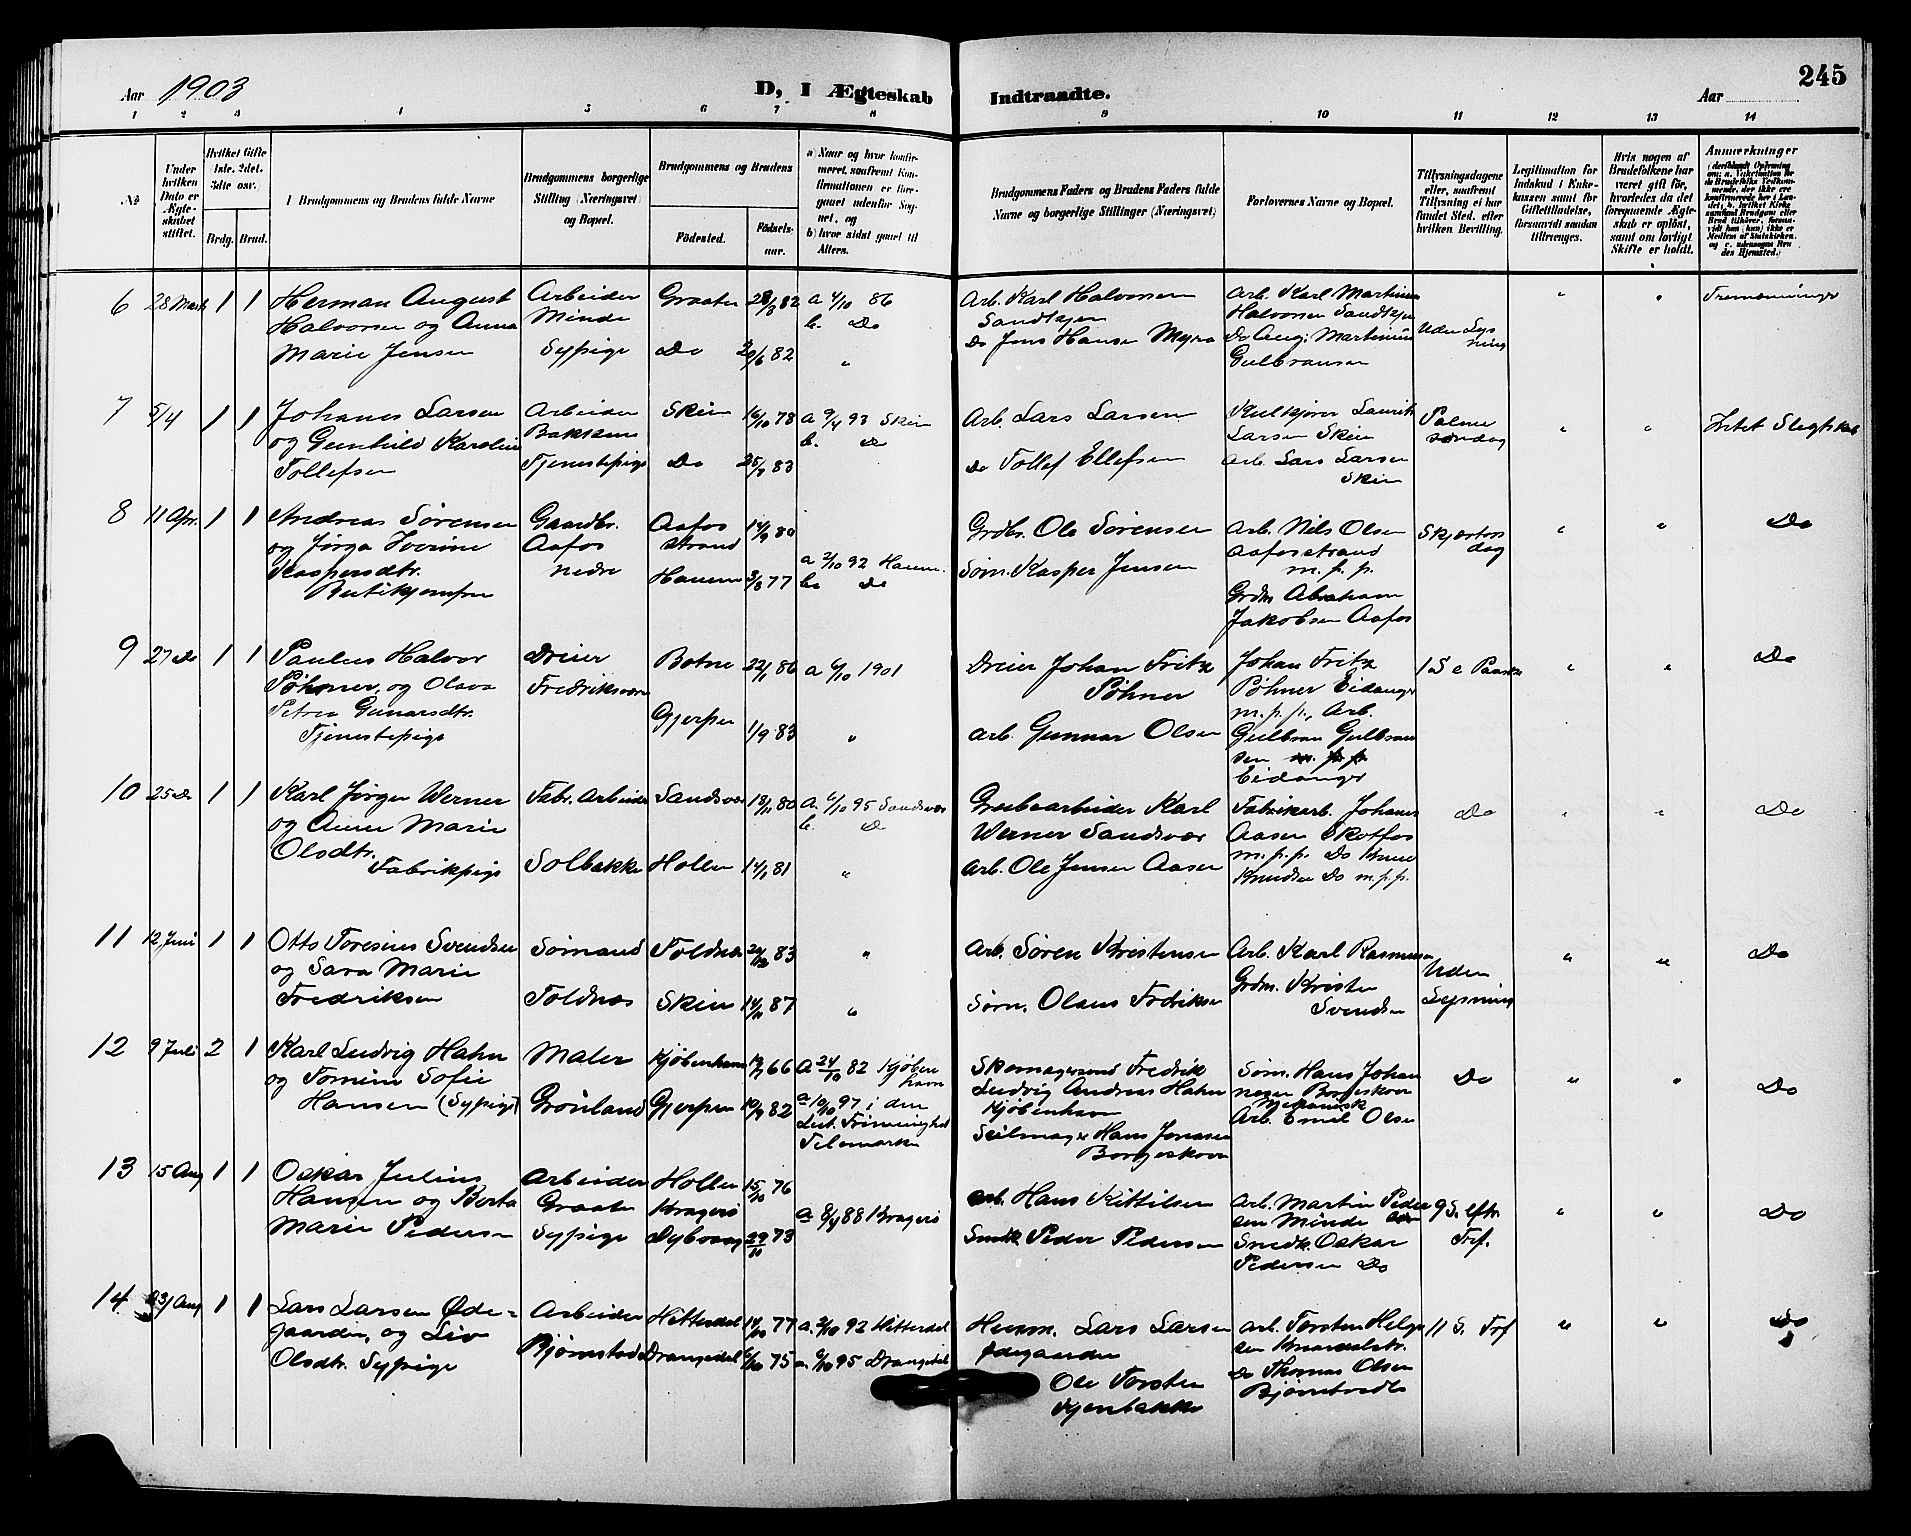 245
Aar 1903
D, I Ægteskab Indtraadte.
Aar
1 2 3 4 5 6 7 8 9 10 11 12 13 14
No
Under hvilken Dato er Ægteskabet stiftet.
Hvilket Gifte 1ste, 2det, 3die osv.
Brdg. Brud.
Brudgommens og Brudens fulde Navne
Brudgommens borgerlige Stilling (Næringsvei) og Bopæl.
Brudgommens og Brudens
Fødested.
Fødselsaar.
a) Naar og hvor konfirmeret, saafremt Konfirmationen er foregaaet udenfor Sognet, og
b) hvor sidst gaaet til Alters.
Brudgommens Faders og Brudens Faders fulde Navne og borgerlige Stillinger (Næringsvei)
Forlovernes Navne og Bopæl.
Tillysningsdagene eller, saafremt Tillysning ei har fundet Sted, efter hvilken Bevilling.
Legitimation for Indskud i Enkekassen samt for Giftetilladelse, forsaavidt saadan tiltrænges.
Hvis nogen af Brudefolkene har været gift før, hvorledes da det foregaaende Ægteskab er opløst, samt om lovligt Skifte er holdt.
Anmærkninger
6 28 Marts 1 1
Herman August
Halvorsen og Anna
Marie Jensen
Arbeider
Minde
Sypige
Graaten 28/3 82
Do 20/6 82
a 4/10 86
b. Do
"
Arb. Karl Halvorsen
Sandkjær
Do Jens Hansen Myra
Arb. Karl Martinus
Halvorsen Sandkjær
Do Aug. Martinius
Gulbransen
Uden Lysning
" "
Tremenninge
7 5/4 1 1
Johanes Larsen
og Gunhild Karoline
Tollefsen
Arbeider
Bakken
Tjenestepige
Skien 16/10 78
Do 25/7 83
a 9/4 93 Skien
b. Do
Arb. Lars Larsen
Do Tollef Ellefsen
Kulkjører Laurits
Larsen Skien
Arb. Lars Larsen
Skien
Palmesøndag
" "
Intet Slegtskab
8 11 Apr. 1 1
Andreas Sørensen
og Jørga Iverine
Kaspersdtr.
Gaardbr.
Aafos
nedre
Aafos strand 14/9 80
Hauen 3/8 77
a 2/10 92 Hauen
b. Do
Grdbr. Ole Sørensen
Søm. Kasper Jensen
Arb. Nils Olsen
Aafosstrand
m.p.p.
Grdm Abraham
Jakobsen Aafos
Skjærtorsdag
" "
Do
9 27 Do 1 1
Paulus Halvor
Pøhner, og Olava
Petrea Gunarsdtr.
Tjenestepige
Dreier
Fredriksværn
Botne 22/1 86
Gjerpen 1/9 83
a 6/10 1901
"
Dreier Johan Fritz
Pøhner
Arb. Gunnar Olsen
Johan Fritz
Pøhner Eidanger
m.p.p., Arb.
Gulbran Gulbransen m.p.p.
Eidanger
1 S e Paaske
" "
Do
10 25 Do 1 1
Karl Jørgen Werner
og Anne Marie
Olsdtr.
Fabrikpige
Fabr. Arbeider
Solbakke
Sandsvær 18/11 80
Hollen 14/1 81
a. 6/10 95 Sandsvær
b. Do
"
Grubearbeider Karl
Werner Sandsvær
Arb. Ole Jensen Aasen
Fabrikarb. Johanes
Aasen Skotfos
m.p.p. Do Knud
Knudsen Do m.p.p.
Do
" "
Do
11 12 Juni 1 1
Otto Toresius Svendsen
og Sara Marie
Fredriksen
Sømand
Toldnæs
Toldnæs 24/12 83
Skien 14/11 87
"
"
Arb. Søren Kristensen
Søm. Olaus Fredriksen
Arb. Karl Rasmussen
Grdm. Kristen
Svendsen
Uden
Lysning
" "
Do
12 9 Juli 2 1
Karl Ludvig Hahn
og Tomine Sofie
Hansen (Sypige)
Maler
Grønland
Kjøbenhavn 19/7 66
Gjerpen 10/9 82
a 24/10 82 Kjøbenhavn
a 10/10 97 i den
Luth. Frimenighed
Telemarken
Skomagersvend Fredrik
Ludvig Andreas Hahn
Kjøbenhavn
Seilmager Hans Jonasen
Borgeskoven
Søm. Hans Johannesen Borgeskoven
Mekanisk
Arb. Emil Olsen
Do
" "
Do
13 15 Aug 1 1
Oskar Julius
Hansen og Berta
Marie Pedersen
Arbeider
Graaten
Sypige
Hollen 15/10 76
Kragerø
Dybvaag 29/11 73
a 8/4 88 Kragerø
Arb. Hans Kittilsen
Snedk. Peder Pedersen
Arb. Martin Pedersen Minde
Snedk. Oskar
Pedersen Do
9 S. eftr.
Tref.
" "
Do
14 23 Aug 1 1
Lars Larsen Ødegaarden, og Liv
Olsdtr. Sypige
Arbeider
Bjørnstad
Hitterdal 14/10 77
Drangedal 6/10 75
a. 2/10 92 Hitterdal
a. 6/10 95 Drangedal
Husm. Lars Larsen
Ødegaarden
Ole Torsten
Arb. Torsten Helgesen
Do Thomas Olsen
11 S. Tref
" "
Do